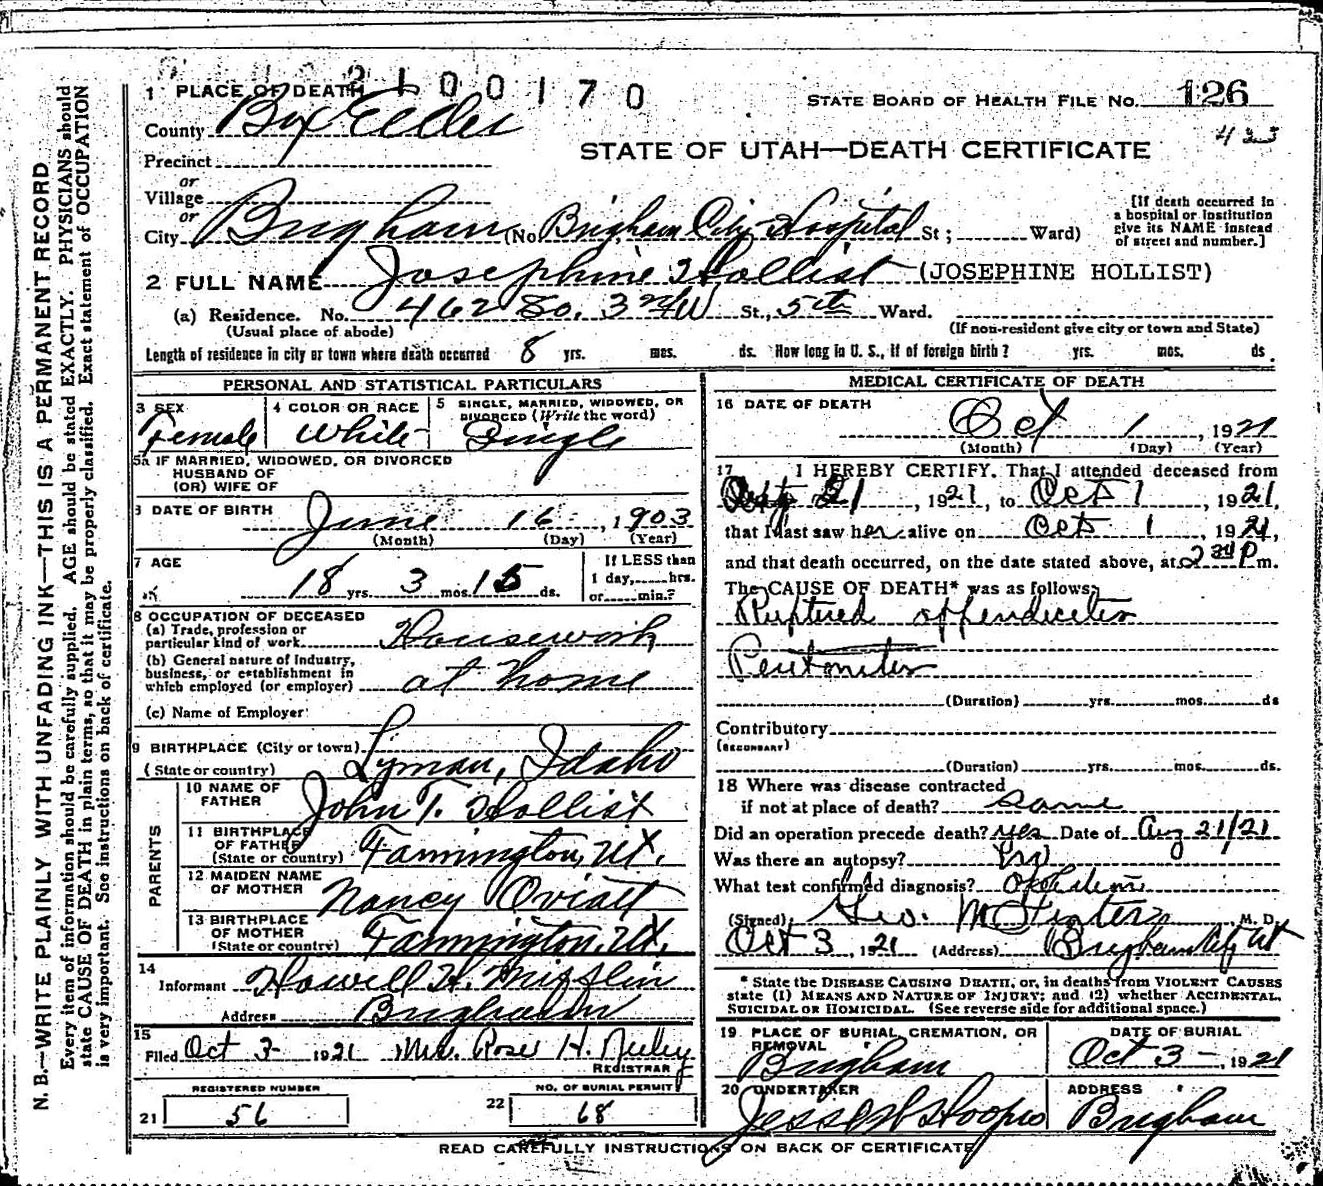 2100170
1 PLACE OF DEATH
STATE BOARD OF HEALTH FILE No. 126
County Box Elder
423
STATE OF UTAH—DEATH CERTIFICATE
Precinct
or
Village
or
City Brigham (No. Brigham City Hospital St; Ward)
[If death occurred in
a hospital or institution
give its NAME instead
of street and number.]
2 FULL NAME Josephine Hollist (JOSEPHINE HOLLIST)
(a) Residence. No. 462 So. 3rd W St., 5th Ward.
(Usual place of abode) (If non-resident give city or town and State)
Length of residence in city or town where death occurred 8 yrs. mos. ds. How long in U. S., if of foreign birth? yrs. mos. ds.
PERSONAL AND STATISTICAL PARTICULARS
3 SEX 4 COLOR OR RACE 5 SINGLE, MARRIED, WIDOWED, OR
DIVORCED (Write the word)
Female White Single
5a IF MARRIED, WIDOWED, OR DIVORCED
HUSBAND OF
(OR) WIFE OF
DATE OF BIRTH June 16, 1903
(Month) (Day) (Year)
7 AGE
If LESS than
1 day,......hrs.
or......min.?
18 yrs. 3 mos. 15 ds.
8 OCCUPATION OF DECEASED
(a) Trade, profession or
particular kind of work Housework
(b) General nature of Industry,
business, or establishment in
which employed (or employer) at home
(c) Name of Employer
9 BIRTHPLACE (City or town)
(State or country) Lyman, Idaho
PARENTS
10 NAME OF
FATHER John T. Hollist
11 BIRTHPLACE
OF FATHER
(State or country) Farmington, Ut.
12 MAIDEN NAME
OF MOTHER Nancy Oviatt
13 BIRTHPLACE
OF MOTHER
(State or country) Farmington, Ut.
14
Informant Howell H. Mifflin
Address Brigham
15
Filed Oct 3 1921 Mrs. Rose H. Neeley
REGISTRAR
REGISTERED NUMBER NO. OF BURIAL PERMIT
21 56 22 68
MEDICAL CERTIFICATE OF DEATH
16 DATE OF DEATH
Oct 1, 1921
(Month) (Day) (Year)
17 I HEREBY CERTIFY, That I attended deceased from
21, 1921, to Oct 1, 1921,
that I last saw her alive on Oct 1, 1921,
and that death occurred, on the date stated above, at 2 30 P m.
The CAUSE OF DEATH* was as follows:
Ruptured appendicitis
Peritonitis
(Duration) yrs. mos. ds
Contributory
(SECONDARY)
(Duration) yrs. mos. ds.
18 Where was disease contracted
if not at place of death? same
Did an operation precede death? yes Date of Aug 21/21
Was there an autopsy?
What test confirmed diagnosis?
(Signed) Geo. M. Fister M. D.
Oct 3, 1921 (Address) Brigham City Ut
* State the DISEASE CAUSING DEATH, or, in deaths from VIOLENT CAUSES
state (1) MEANS AND NATURE OF INJURY; and (2) whether ACCIDENTAL,
SUICIDAL OR HOMICIDAL. (See reverse side for additional space.)
19 PLACE OF BURIAL, CREMATION, OR
REMOVAL
Brigham
DATE OF BURIAL
Oct 3 -, 1921
20 UNDERTAKER
Jesse W Hoopes
ADDRESS
Brigham
READ CAREFULLY INSTRUCTIONS ON BACK OF CERTIFICATE
N. B.—WRITE PLAINLY WITH UNFADING INK—THIS IS A PERMANENT RECORD
Every item of information should be carefully supplied. AGE should be stated EXACTLY. PHYSICIANS should
state CAUSE OF DEATH in plain terms, so that it may be properly classified. Exact statement of OCCUPATION
is very important. See instructions on back of certificate.